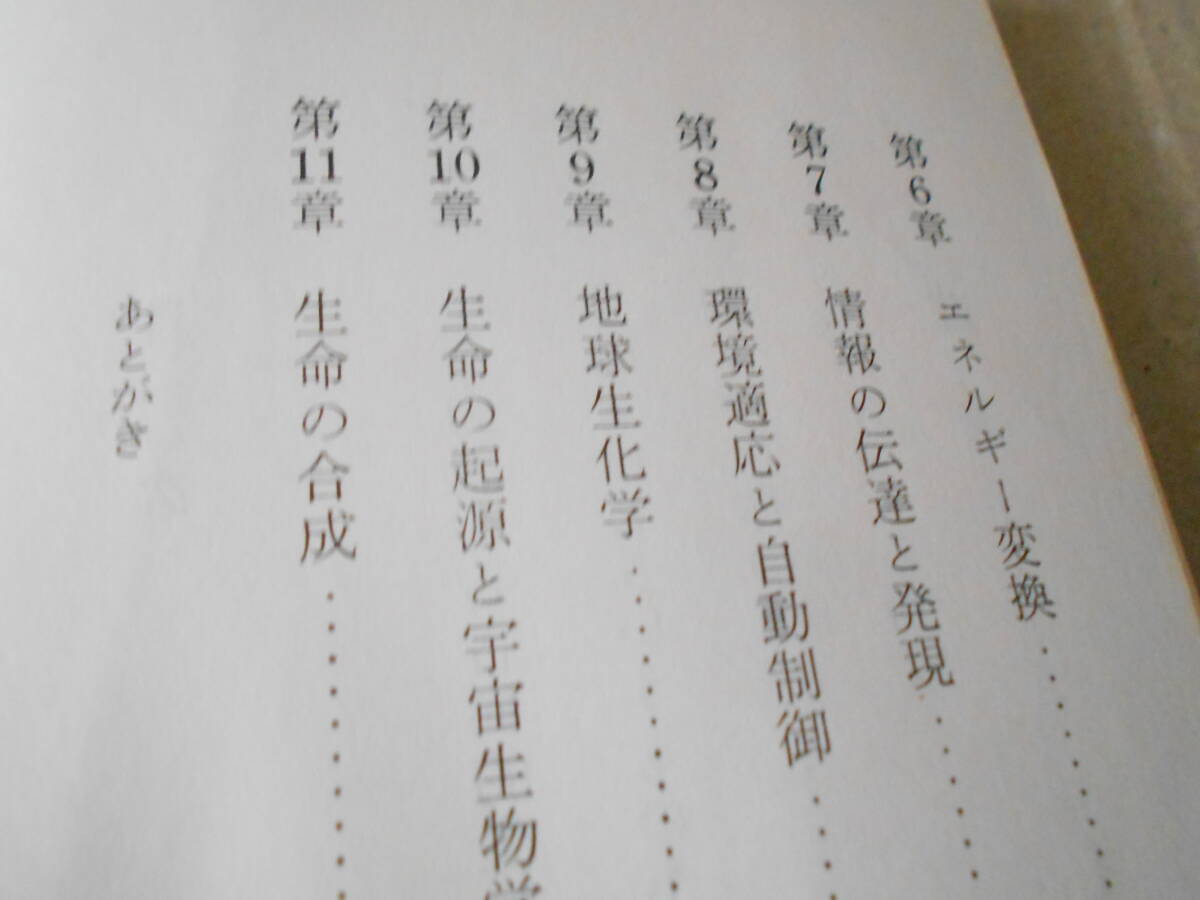 第6章 エネルギー変換
第7章 情報の伝達と発現
第8章 環境適応と自動制御
第9章 地球生化学
第10章 生命の起源と宇宙生物学
第11章 生命の合成
あとがき